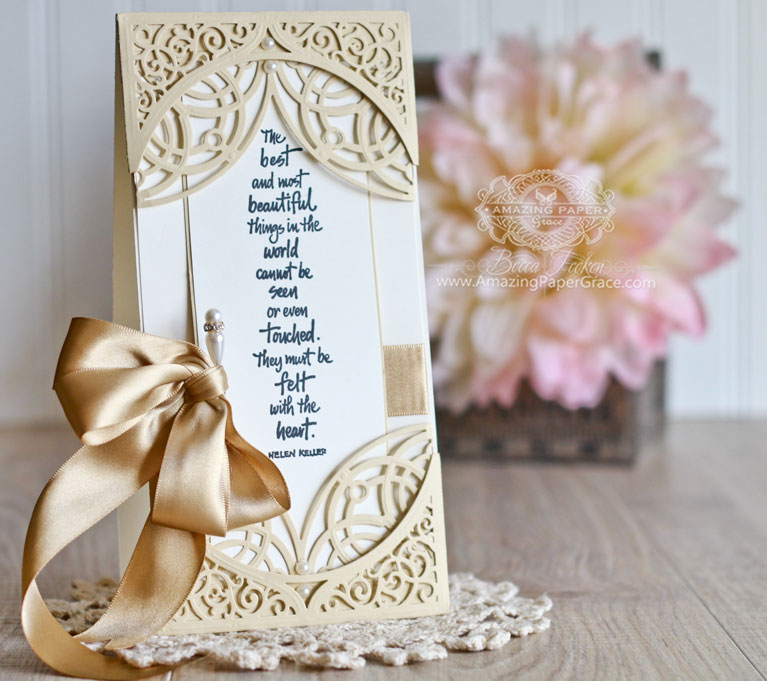 The
best
and most
beautiful
things in the
world
cannot be
seen
or even
Touched.
They must be
felt
with the
heart.
HELEN KELLER
AMAZING PAPER
Grace
Becca Feeken
www.AmazingPaperGrace.com